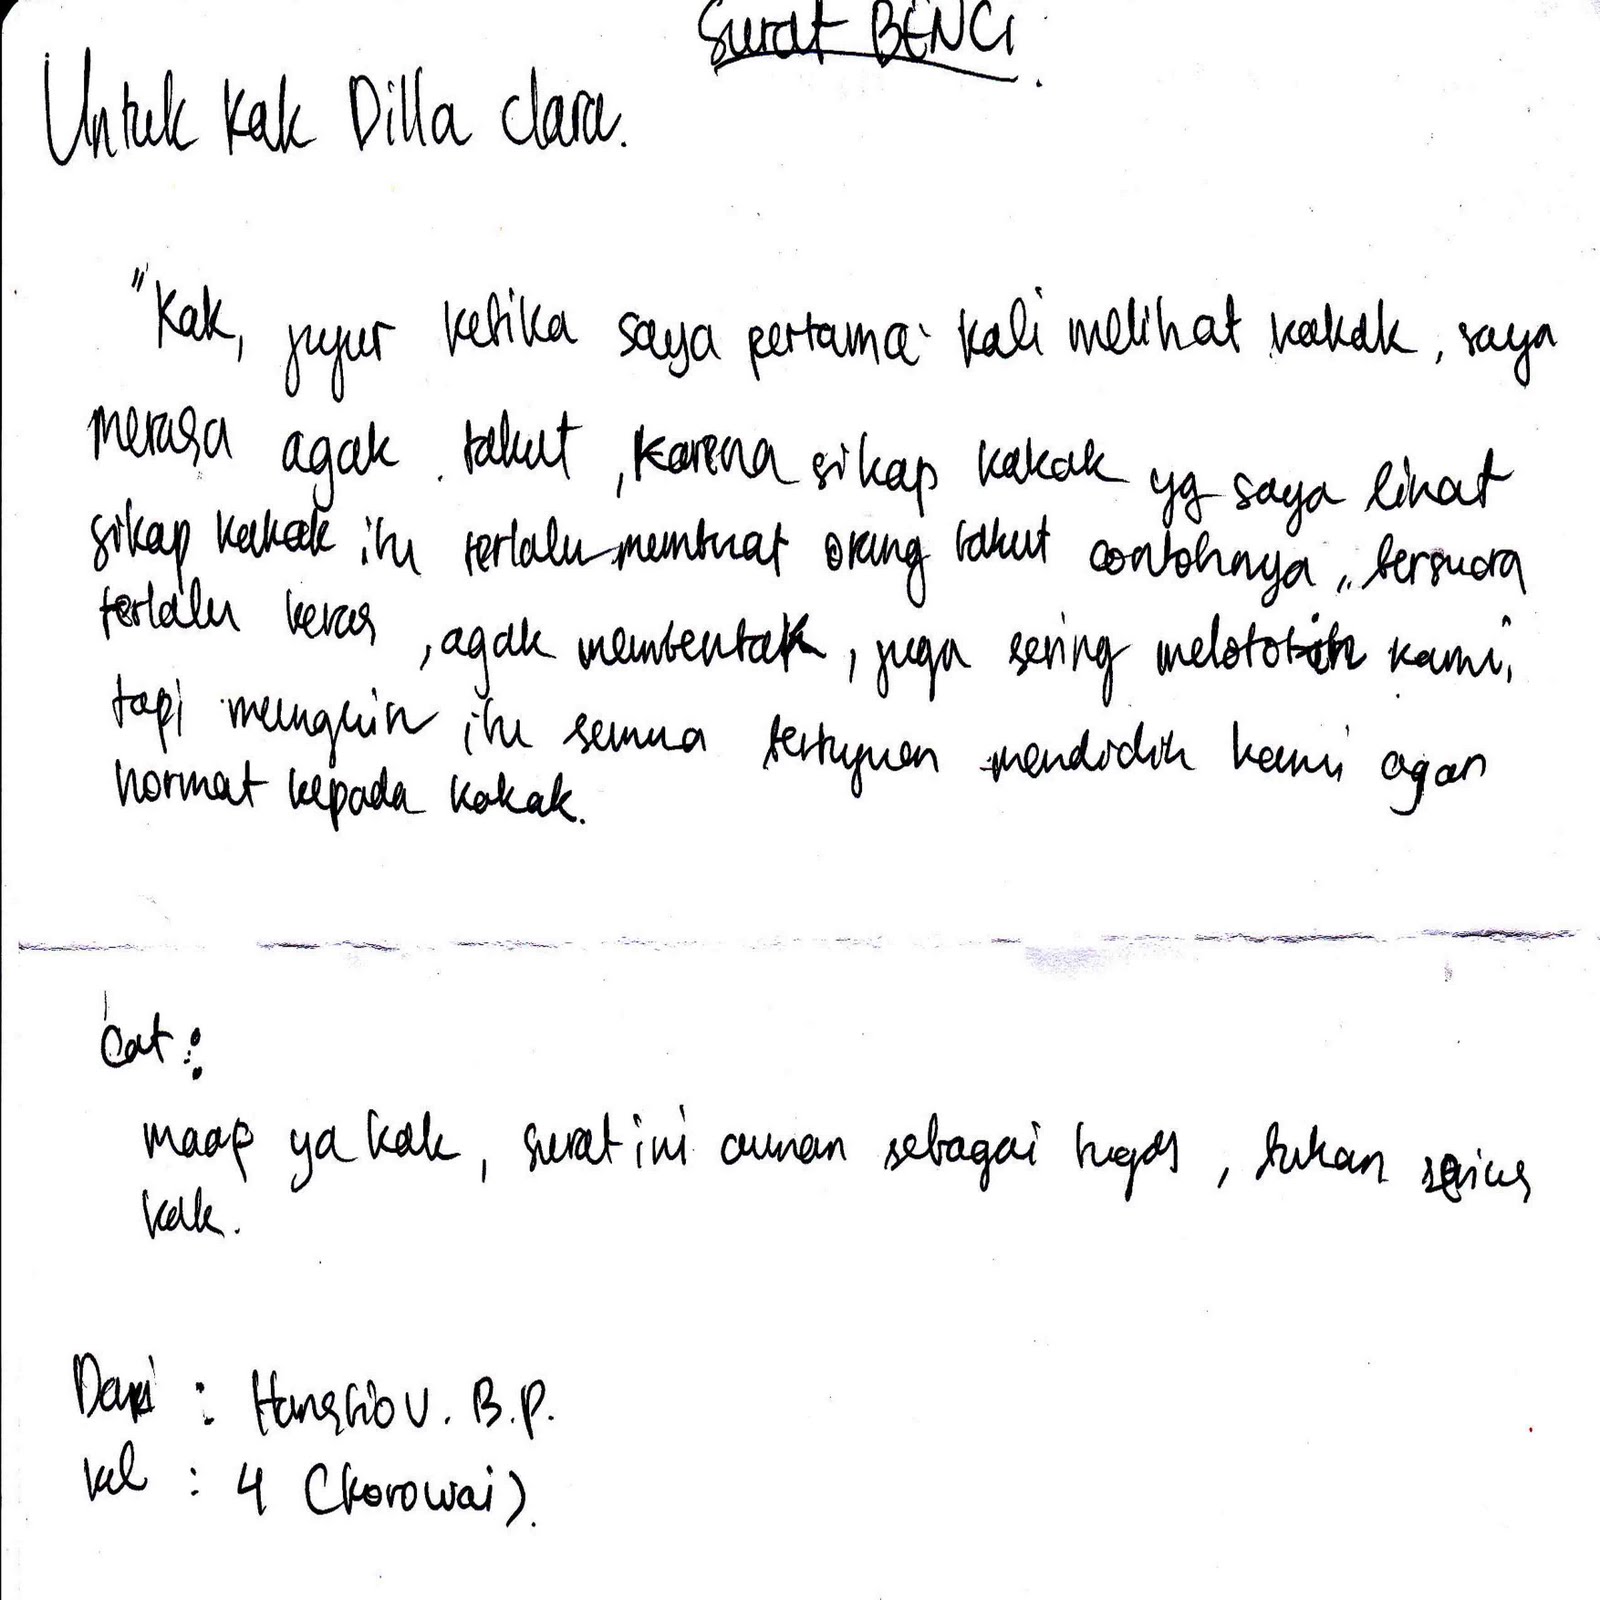 Surat BENCI.
Untuk Kak Dilla Clara.
"Kak, jujur ketika saya pertama kali melihat kakak, saya
merasa agak takut, karena sikap kakak yg saya lihat
sikap kakak itu terlalu membuat orang takut contohnya,, bersuara
terlalu keras, agak membentak, juga sering melototin kami,
tapi mungkin itu semua bertujuan mendidik kami agar
hormat kepada kakak.
Cat :
maap ya kak, surat ini cuman sebagai tugas, bukan serius
kak.
Dari : V. B.P.
kel : 4 (Korowai).